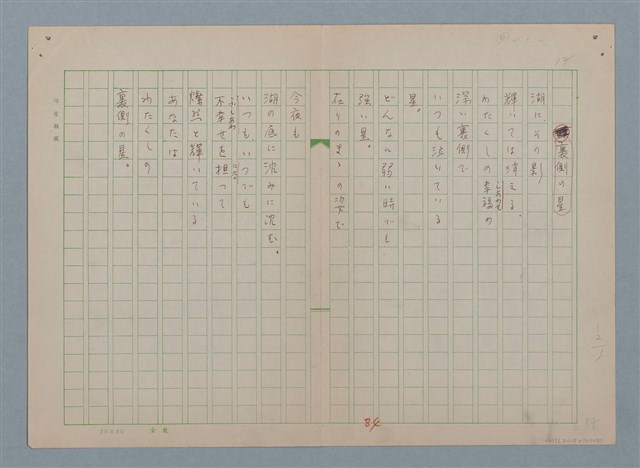 裏側の星
湖にその影
輝いては消える。
わたくしの幸福の
深い裏側で
いつも泣いている
星。
どんな弱い時でも
強い星。
在りのまゝの姿で
今夜も
湖の底に沈みに沈む。
いつも、いつでも
不幸せを担って
燦然と輝いている
あなたは
わたくしの
裏側の星。
84
20×20